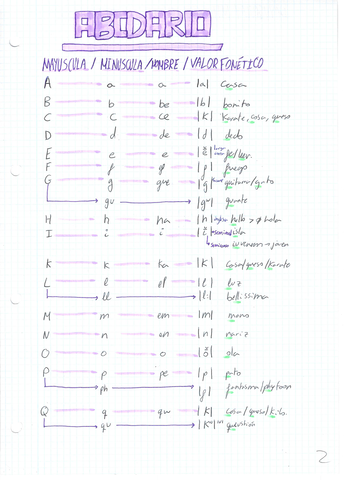 ABIDARIO
MAYUSCULA / MINUSCULA / NOMBRE / VALOR FONÉTICO
A a a |a| casa
B b be |b| bonito
C c ce |k| karate, casa, queso
D d de |d| dedo
E e e
F f |f| fuego
G g gue |g| guitarra/gato
gu |gʷ| guante
H h ha |h| hello > hola
I i i isla
K k ka |k| casa/queso/karate
L l el |l| luz
ll |l:| bellissima
M m em |m| mano
N n en |n| nariz
O o o ola
P p pe |p| pato
ph |f| fantasma/phytoon
Q q qu |k| casa/queso/kilo
qu |kʷ| question
2